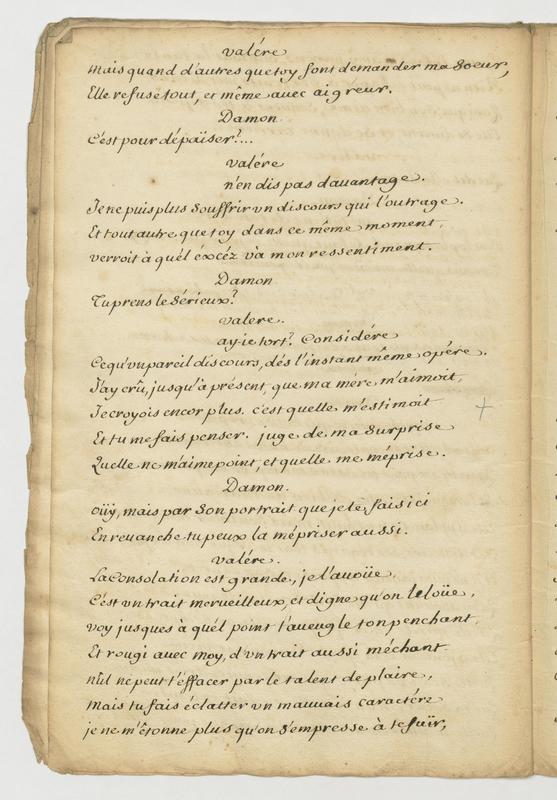 valére
Mais quand d'autres que toy font demander ma Soeur,
Elle refuse tout, et même avec aigreur.
Damon
C'est pour dépaïser?...
valére
n'en dis pas davantage.
Je ne puis plus Souffrir vn discours qui l'outrage.
Et tout autre que toy dans ce même moment,
verroit à quél éxcéz va mon ressentiment.
Damon
Tu prens le Sérieux?
valere.
ay-ie tort? Considére
Ce qu'vn pareil discours, dés l'instant même opére.
J'ay crû, jusqu'à présent, que ma mére m'aimoit,
Je croyois encor plus. c'est quelle m'estimoit
Et tu me fais penser. juge de ma Surprise
Quelle ne m'aime point, et quelle me méprise.
Damon.
Oüy, mais par Son portrait que je te fais ici
En revanche tu peux la mépriser aussi.
valére.
La Consolation est grande, je l'avoüe,
C'est vn trait merveilleux, et digne qu'on le loüe,
voy jusques à quél point t'aveugle ton penchant
Et rougi avec moy, d'vn trait aussi méchant
nul ne peut t'éffacer par le talent de plaire,
Mais tu fais éclatter vn mauvais caractére
je ne m'étonne plus qu'on S'empresse à te fuïr,